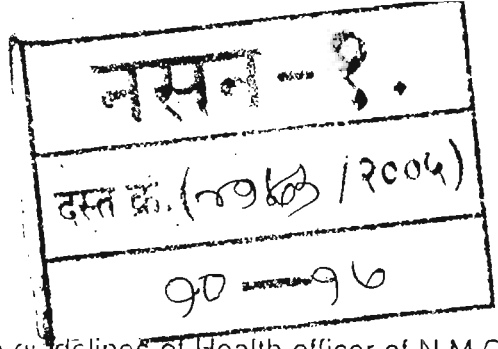 नसन-१.
दस्त क्र. ( /२००५)
१०-१७
guidelines of Health officer of N.M.C